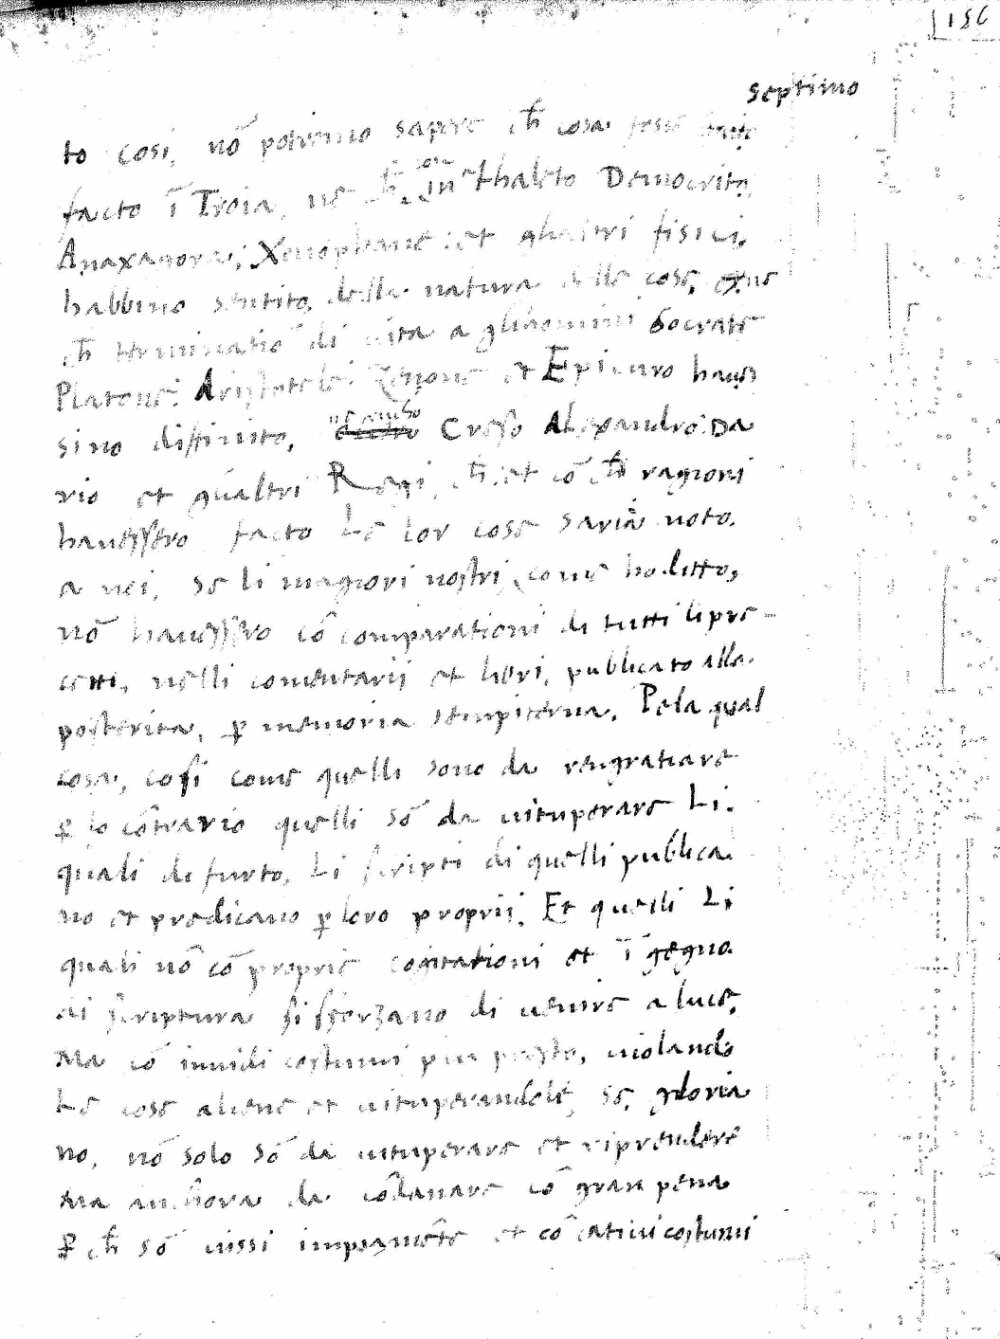 156
septimo
to cosi, nō poteremo sapere ch̄ cosa fosse
facto ī Troia, ne ch̄ thaleto Democrito,
Anaxagora, Xenophane: et ghaltri fisici,
habbino sentito, della natura delle cose,
ch̄ terminatiō di vita a glihomini Socrate
Platone: Aristotele: Zenone et Epicuro haues
sino diffinito, Creso Alexandro: Da
rio et gualtri Regi, ch̄: et cō ch̄ ragioni
hauessero facto Le lor cose saria noto.
a noi, se li magiori nostri, come ho ditto,
nō hauessero cō comparationi di tutti li pre-
cetti, nelli comentarij et libri, publicato alla
posterita, ꝑ memoria sempiterna. Pela qual
cosa, cosi come quelli sono da rengratiare
ꝑ lo cōtrario quelli sō da uituperare Li.
quali di furto, Li scripti di quelli publica
no et predicano ꝑ loro proprij. Et quelli Li
quali nō cō proprie cogitationi et ī gegno
di scriptura si sforzano di uenire a luce,
Ma cō inuidi costumi piu presto, uiolando
Le cose aliene et uituperandole, se, gloria
no, nō solo sō da uituperare et riprendere
Ma anchora da cōdanare cō gran pena
ꝑ ch̄ sō uissi impiamēte et cō catiui costumi